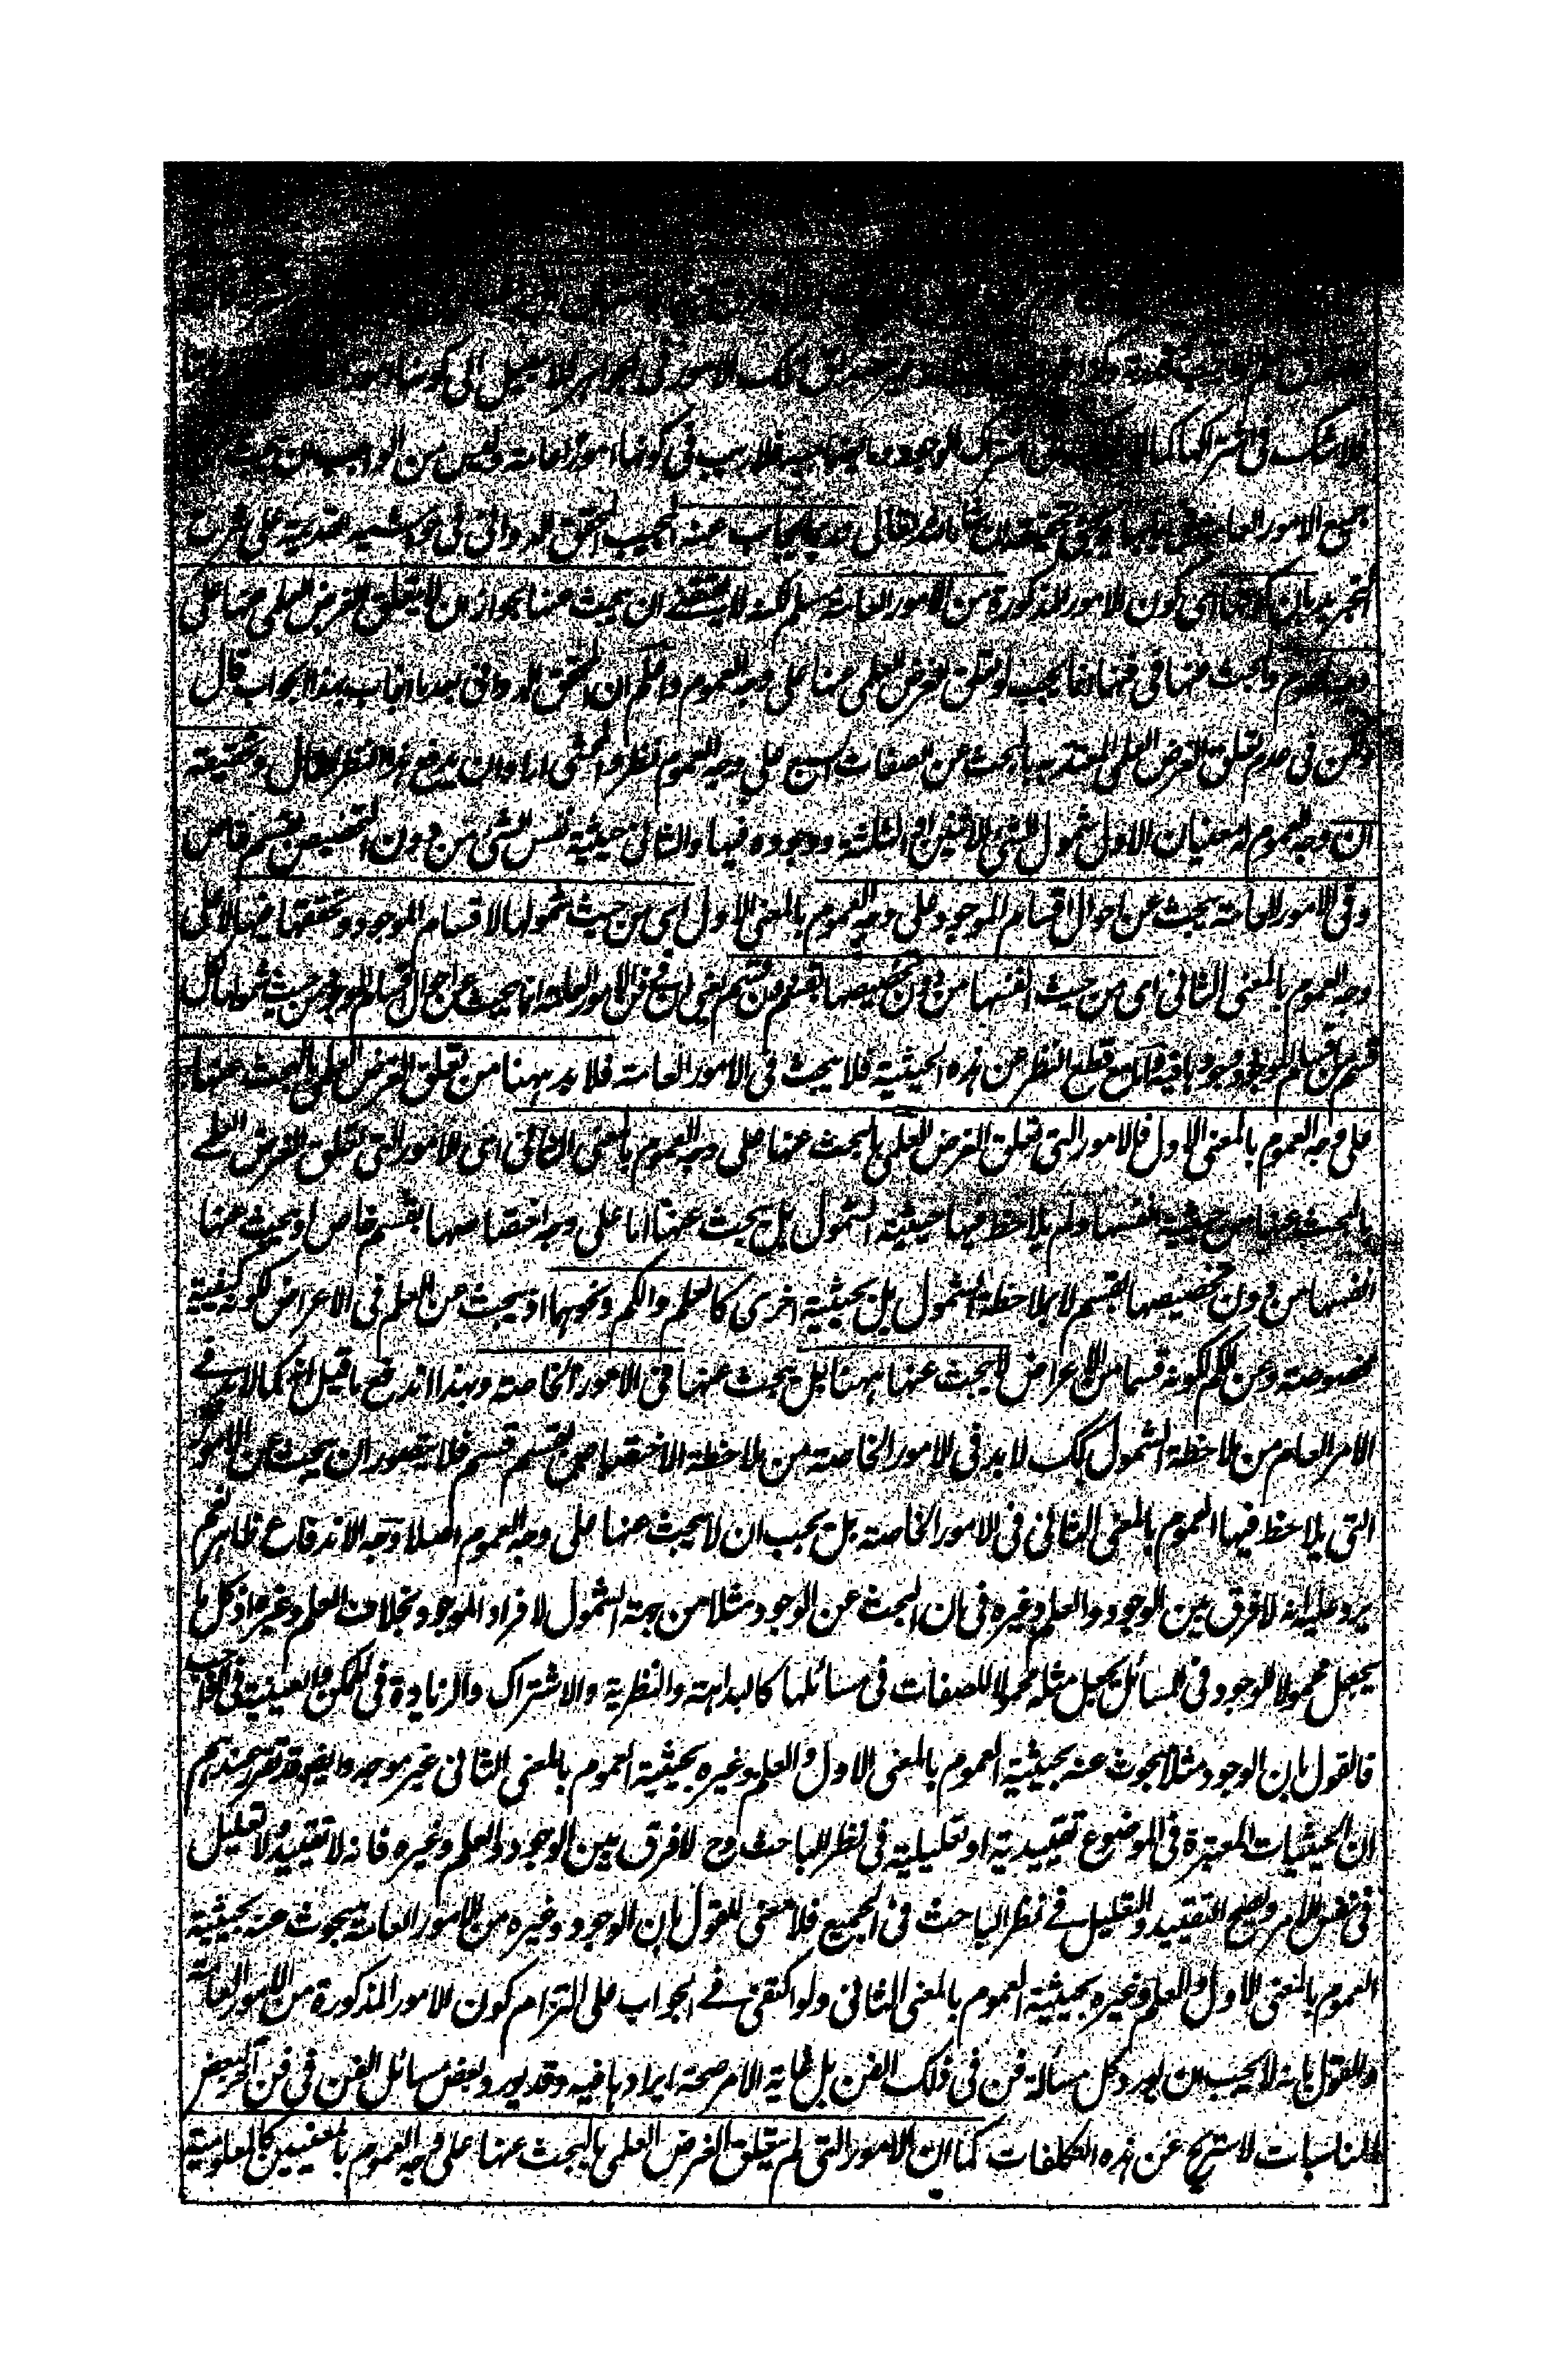 تلك الامور فى الجواهر لا سبيل الى كونها
ولا شك فى اشتراكها كما لا شك فى اشتراك الوجود وما يضاهيه فلا ريب فى كونها امورا عامة وليس من الواجب ان يبحث
جميع الامور العامة فى بابها ويجئ تحقيقه ان شاء الله تعالى قد يجاب عنه المجيب المحقق الدوانى فى حواشيه القديمة على شرح
التجريد بان كونها اى كون الامور المذكورة من الامور العامة مسلم لكنه لا يقتضى ان يبحث عنها لجواز ان لا يتعلق الغرض العلمى عنها على
وجه العموم والبحث عنها فى فنها انما يجب لو تعلق الغرض العلمى عنها على وجه العموم واعلم ان المحقق الدوانى بعد ما اجاب بهذا الجواب قال
ولكن فى عدم تعلق الغرض العلمى المعتد به بالبحث عن الصفات السبع على وجه العموم نظر والمحشى اراد ان يدفع هذا النظر فقال وتحقيقه
ان وجه العموم له معنيان الاول شمول الشئ للاثنين او الثلثة ووجوده فيها والثانى حيثية نفس الشئ من دون التخصيص بقسم خاص
وفى الامور العامة يبحث عن احوال اقسام الموجود على وجه العموم بالمعنى الاول اى من حيث شمولها لاقسام الموجود وتحققها فيها لا على
وجه العموم بالمعنى الثانى اى من حيث انفسها من دون تخصيصها بقسم دون قسم يعنى ان فى فن الامور العامة انما يبحث عن احوال اقسام الموجود من حيث شمولها لكل
قسم من اقسام الموجود ووجودها فيه واما مع قطع النظر عن هذه الحيثية فلا يبحث فى الامور العامة فلا بد ههنا من تعلق الغرض العلمى بالبحث عنها
على وجه العموم بالمعنى الاول فالامور التى تعلق الغرض العلمى بالبحث عنها على وجه العموم بالمعنى الثانى اى الامور التى تعلق الغرض العلمے
بالبحث عنها من حيثية انفسها ولم يلاحظ فيها حيثية الشمول بل يبحث عنها اما على وجه اختصاصها بقسم خاص او يبحث عنها
انفسها من دون تخصيصها بقسم لا بملاحظة الشمول بل بحيثية اخرى كالعلم والكم ونحوهما اذ يبحث عن العلم فى الاعراض لكونه كيفية
مخصوصة وعن الكم لكونه قسما من الاعراض لا يبحث عنها ههنا بل يبحث عنها فى الامور الخاصة وبهذا اندفع ما قيل انه كما لا بد فے
الامر العام من ملاحظة الشمول كك لا بد فى الامور الخاصة من ملاحظة الاختصاص بقسم قسم فلا يتصور ان يبحث عن الامور
التى يلاحظ فيها العموم بالمعنى الثانى فى الامور الخاصة بل يجب ان لا يبحث عنها على وجه العموم اصلا وجه الاندفاع ظاهر نعم
يرد عليه انه لا فرق بين الوجود والعلم وغيره فى ان البحث عن الوجود مثلا من جهة الشمول لافراد الموجود بخلاف العلم وغيره اذ كل ما
يجعل محمولا للوجود فى المسائل يجعل مثله محمولا للصفات فى مسائلها كالبداهة والنظرية والاشتراك والزيادة فى الممكن والعينية فى الواجب
فالقول بان الوجود مثلا مبحوث عنه بحيثية العموم بالمعنى الاول والعلم وغيره بحيثية العموم بالمعنى الثانى غير موجه وايضا قد تقرر عندهم
ان الحيثيات المعتبرة فى الموضوع تقييدية او تعليلية فى نظر الباحث وح لا فرق بين الوجود والعلم وغيره فانه لا تقييد ولا تعليل
فى نفس الامر ويصح التقييد والتعليل فے نظر الباحث فى الجميع فلا معنى للقول بان الوجود وغيره من الامور العامة مبحوث عنه بحيثية
العموم بالمعنى الاول والعلم وغيره بحيثية العموم بالمعنى الثانى ولو اكتفى فے الجواب على التزام كون الامور المذكورة من الامور العامة
والقول بانه لا يجب ان يورد كل مسألة فن فى ذلك الفن بل غاية الامر صحة ايرادها فيه وقد يورد بعض مسائل الفن فى فن آخر لبعض
المناسبات لاستريح عن هذه التكلفات كما ان الامور التى لم يتعلق الغرض العلمى بالبحث عنها على وجه العموم بالمعنيين كالمعلومية